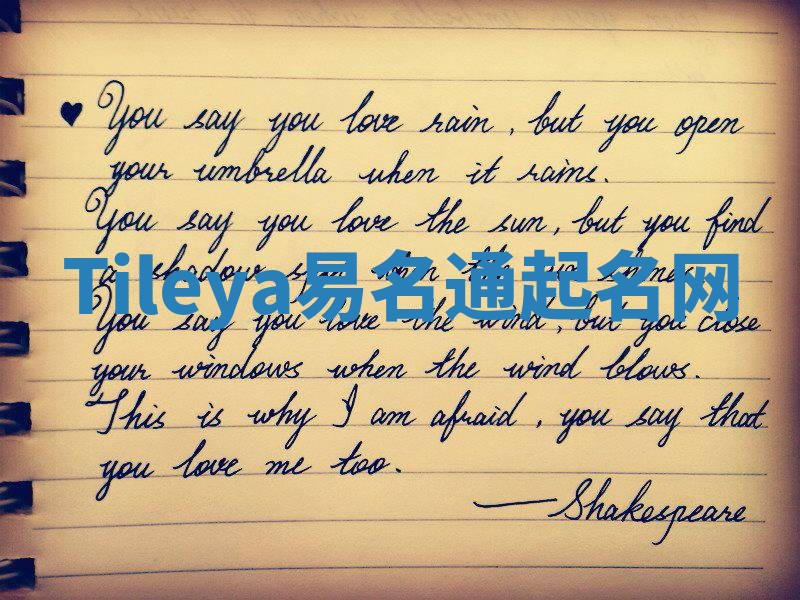 ♥ You say you love rain, but you open
your umbrella when it rains.
You say you love the sun, but you find
a shadow spot when the sun shines.
Tileya易名通起名网
You say you love the wind, but you close
your windows when the wind blows.
This is why I am afraid, you say that
you love me too.
— Shakespeare